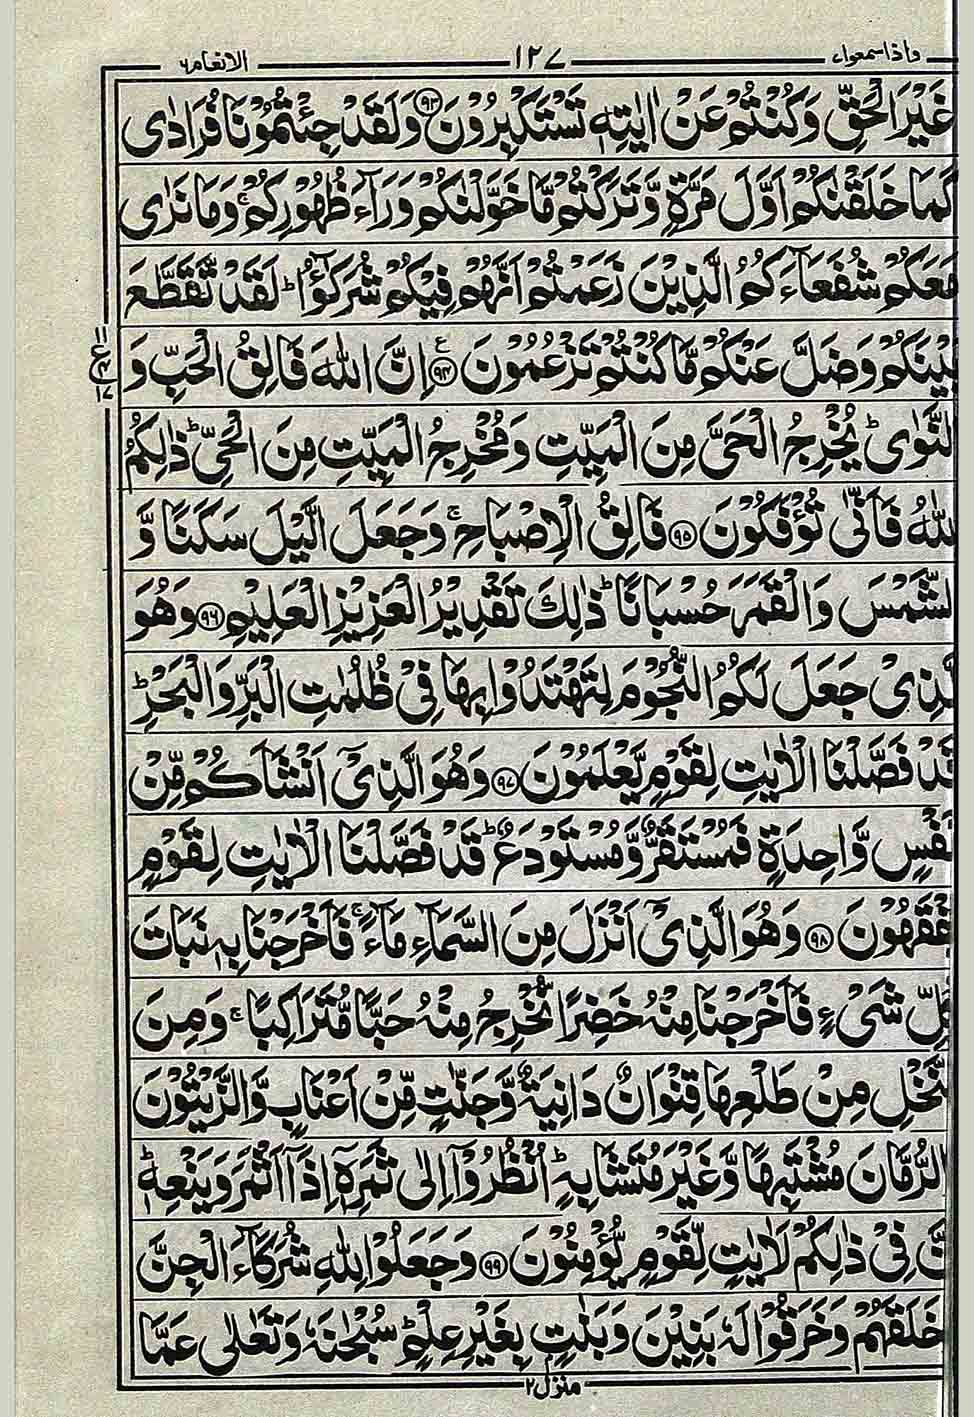 واذا سمعوا۷ ۱۲۷ الانعام۶
غَيْرَ الْحَقِّ وَكُنْتُمْ عَنْ اٰيٰتِهٖ تَسْتَكْبِرُوْنَ ۹۳ وَلَقَدْ جِئْتُمُوْنَا فُرَادٰى
كَمَا خَلَقْنٰكُمْ اَوَّلَ مَرَّةٍ وَّتَرَكْتُمْ مَّا خَوَّلْنٰكُمْ وَرَآءَ ظُهُوْرِكُمْ ۚ وَمَا نَرٰى
مَعَكُمْ شُفَعَآءَكُمُ الَّذِيْنَ زَعَمْتُمْ اَنَّهُمْ فِيْكُمْ شُرَكٰٓؤُا ؕ لَقَدْ تَّقَطَّعَ
بَيْنَكُمْ وَضَلَّ عَنْكُمْ مَّا كُنْتُمْ تَزْعُمُوْنَ ۹۴ ع اِنَّ اللّٰهَ فَالِقُ الْحَبِّ وَ
النَّوٰى ؕ يُخْرِجُ الْحَىَّ مِنَ الْمَيِّتِ وَمُخْرِجُ الْمَيِّتِ مِنَ الْحَىِّ ؕ ذٰلِكُمُ
اللّٰهُ فَاَنّٰى تُؤْفَكُوْنَ ۹۵ فَالِقُ الْاِصْبَاحِ ۚ وَجَعَلَ الَّيْلَ سَكَنًا وَّ
الشَّمْسَ وَالْقَمَرَ حُسْبَانًا ؕ ذٰلِكَ تَقْدِيْرُ الْعَزِيْزِ الْعَلِيْمِ ۹۶ وَهُوَ
الَّذِىْ جَعَلَ لَكُمُ النُّجُوْمَ لِتَهْتَدُوْا بِهَا فِىْ ظُلُمٰتِ الْبَرِّ وَالْبَحْرِ ؕ
قَدْ فَصَّلْنَا الْاٰيٰتِ لِقَوْمٍ يَّعْلَمُوْنَ ۹۷ وَهُوَ الَّذِىْۤ اَنْشَاَكُمْ مِّنْ
نَّفْسٍ وَّاحِدَةٍ فَمُسْتَقَرٌّ وَّمُسْتَوْدَعٌ ؕ قَدْ فَصَّلْنَا الْاٰيٰتِ لِقَوْمٍ
يَّفْقَهُوْنَ ۹۸ وَهُوَ الَّذِىْۤ اَنْزَلَ مِنَ السَّمَآءِ مَآءً ۚ فَاَخْرَجْنَا بِهٖ نَبَاتَ
كُلِّ شَىْءٍ فَاَخْرَجْنَا مِنْهُ خَضِرًا نُّخْرِجُ مِنْهُ حَبًّا مُّتَرَاكِبًا ۚ وَمِنَ
النَّخْلِ مِنْ طَلْعِهَا قِنْوَانٌ دَانِيَةٌ وَّجَنّٰتٍ مِّنْ اَعْنَابٍ وَّالزَّيْتُوْنَ
وَالرُّمَّانَ مُشْتَبِهًا وَّغَيْرَ مُتَشَابِهٍ ؕ اُنْظُرُوْۤا اِلٰى ثَمَرِهٖۤ اِذَاۤ اَثْمَرَ وَيَنْعِهٖ ؕ
اِنَّ فِىْ ذٰلِكُمْ لَاٰيٰتٍ لِّقَوْمٍ يُّؤْمِنُوْنَ ۹۹ وَجَعَلُوْا لِلّٰهِ شُرَكَآءَ الْجِنَّ
وَخَلَقَهُمْ وَخَرَقُوْا لَهٗ بَنِيْنَ وَبَنٰتٍ بِغَيْرِ عِلْمٍ ؕ سُبْحٰنَهٗ وَتَعٰلٰى عَمَّا
۱۱
ع
۴
۱۷
منزل۲